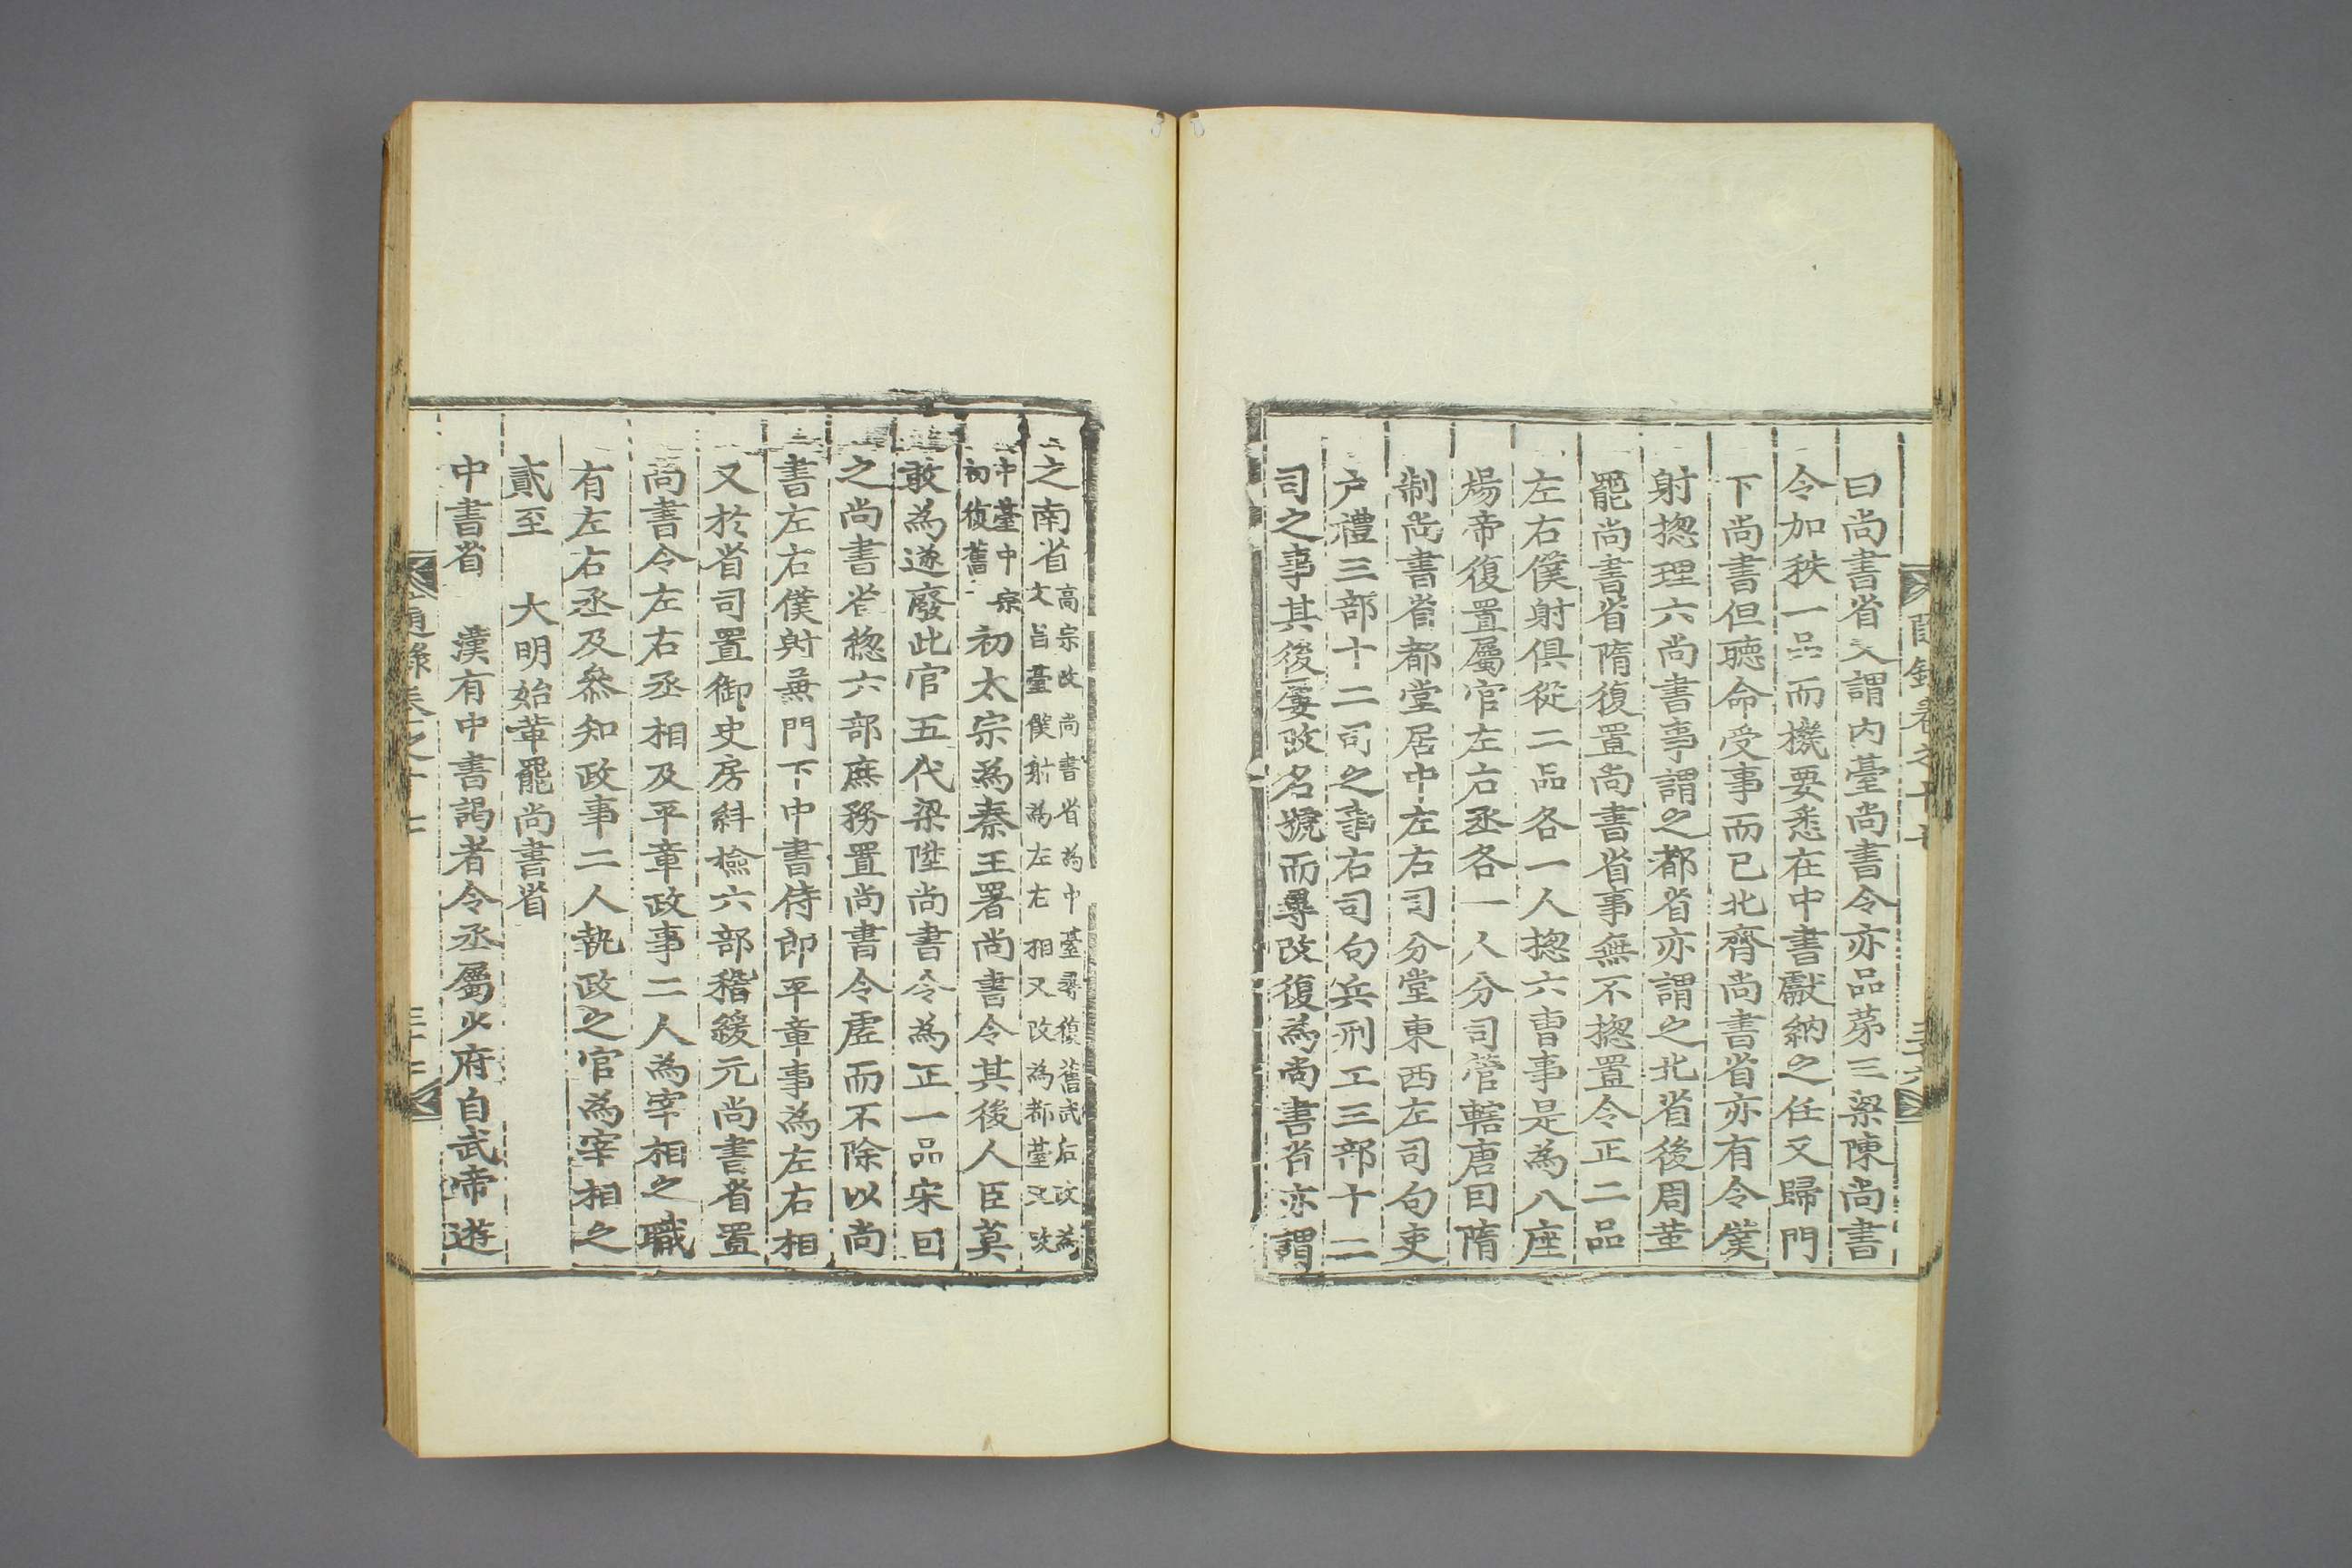 曰尚書省又謂內臺尚書令亦品苐三梁陳尚書
令加秩一品而機要悉在中書獻納之任又歸門
下尚書但聽命受事而已北齊尚書省亦有令僕
射揔理六尚書事謂之都省亦謂之北省後周
罷尚書省隋復置尚書省事無不揔置令正二品
左右僕射俱從二品各一人揔六曺事是為八座
煬帝復置屬官左右丞各一人分司管轄唐因隋
制尚書省都堂居中左右司分堂東西左司句吏
户禮三部十二司之事右司句兵刑工三部十二
司之事其後屢改名號而尋改復為尚書省亦謂
之南省高宗改尚書省為中臺尋復舊武后改為
文昌臺僕射為左右相又改為都臺又改
中臺中宗
初復舊
初太宗為秦王署尚書令其後人臣莫
敢為遂廢此官五代梁陞尚書令為正一品宋因
之尚書省緫六部庶務置尚書令虛而不除以尚
書左右僕射兼門下中書侍郎平章事為左右相
又於省司置御史房糾檢六部稽緩元尚書省置
尚書令左右丞相及平章政事二人為宰相之職
有左右丞及叅知政事二人執政之官為宰相之
貳至　大明始革罷尚書省
中書省　漢有中書謁者令丞屬少府自武帝遊